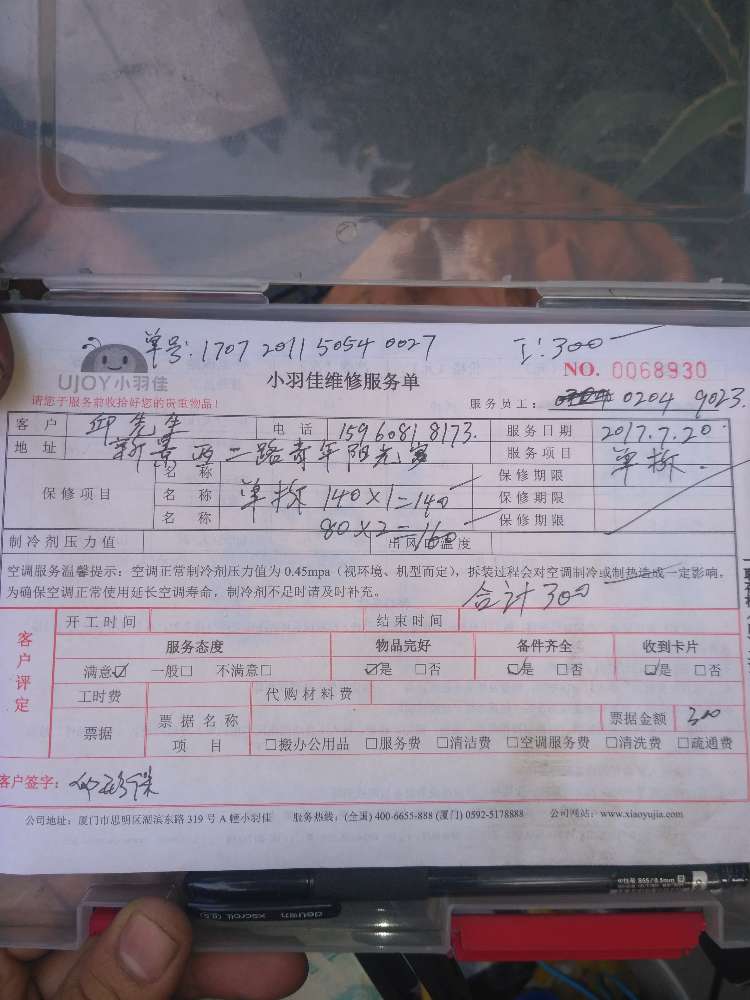 单号:1707 2011 5054 0027 工:300
UJOY小羽佳 小羽佳维修服务单 NO. 0068930
请您于服务前收拾好您的贵重物品! 服务员工: 0204 9023
客 户 邱先生 电 话 15960818173. 服务日期 2017.7.20
地 址 新景西二路青年阳光 服务项目 单拆
保修项目 名 称 保修期限
名 称 单拆 140×1=140 保修期限
名 称 80×2=160 保修期限
制冷剂压力值 出风口温度
空调服务温馨提示:空调正常制冷剂压力值为 0.45mpa(视环境、机型而定),拆装过程会对空调制冷或制热造成一定影响,
为确保空调正常使用延长空调寿命,制冷剂不足时请及时补充。
合计300
客户评定 开工时间 结束时间
服务态度 物品完好 备件齐全 收到卡片
满意☑ 一般□ 不满意□ ☑是 □否 ☑是 □否 ☑是 □否
工时费 代购材料费
票据 票据名称 票据金额 300
项 目 □搬办公用品 □服务费 □清洁费 □空调服务费 □清洗费 □疏通费
客户签字:
公司地址:厦门市思明区湖滨东路 319 号 A 幢小羽佳 服务热线:(全国) 400-6655-888 (厦门) 0592-5178888 公司网站:www.xiaoyujia.com
deli xscroll